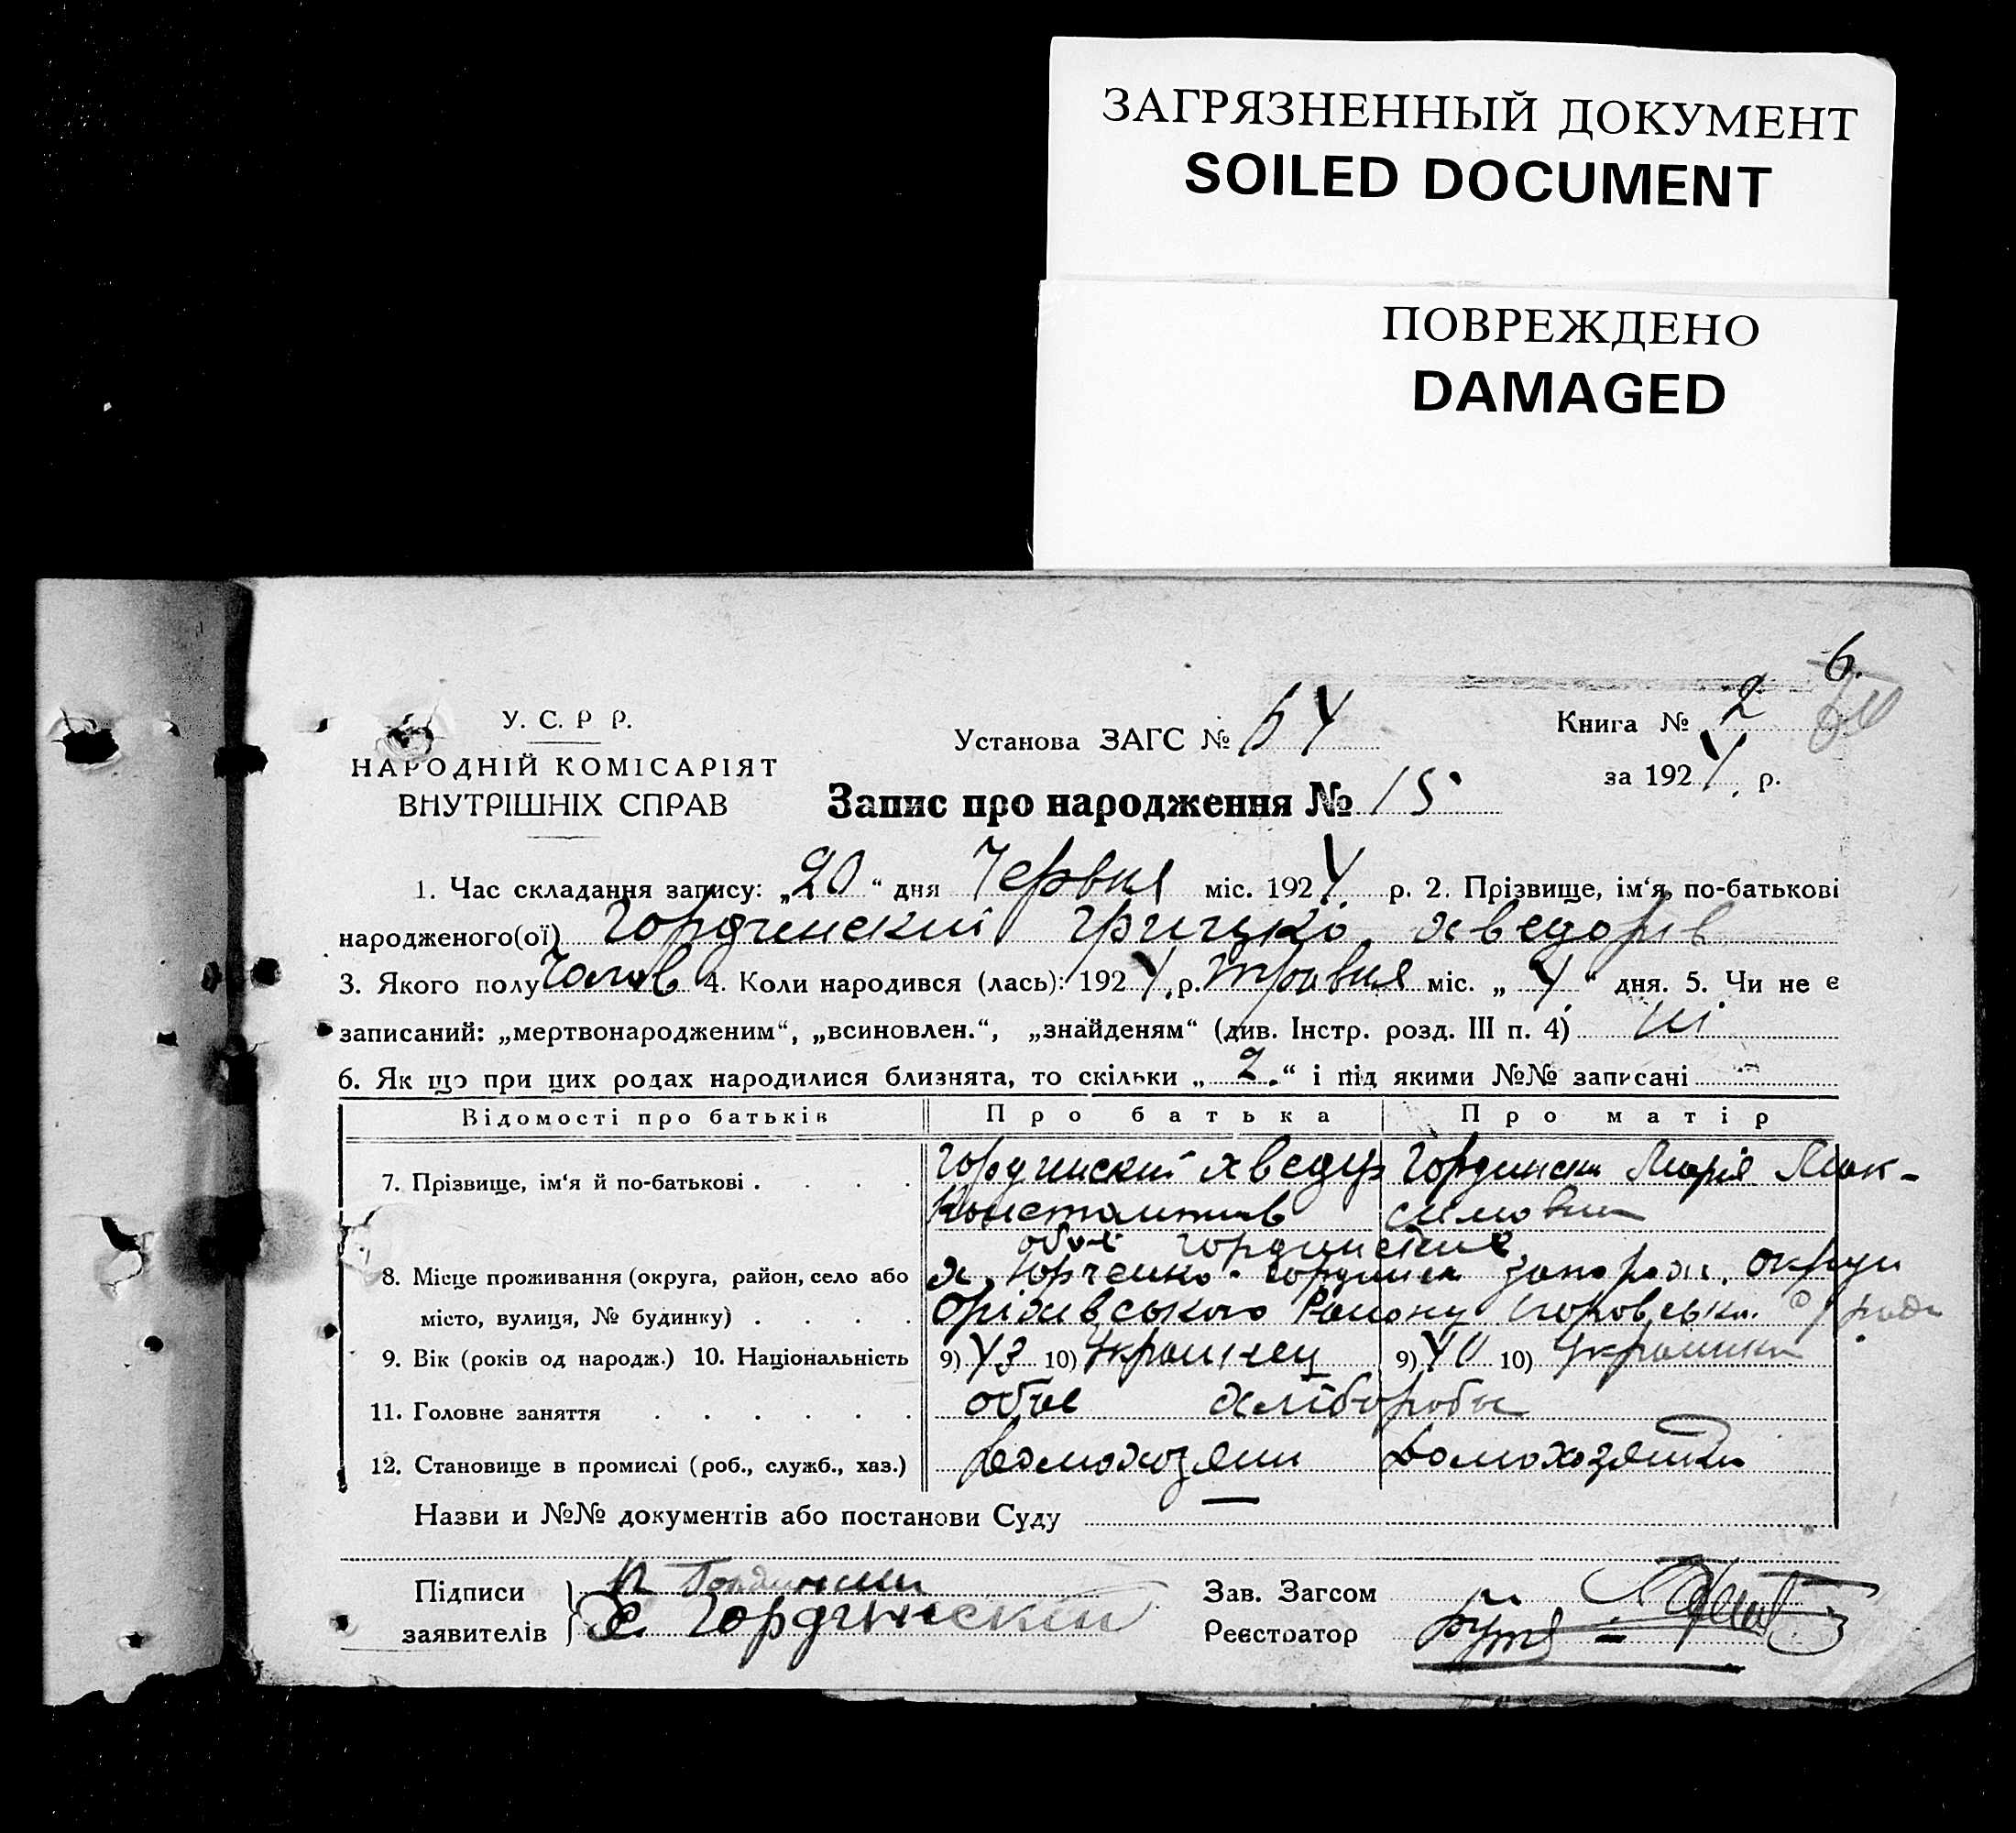 ЗАГРЯЗНЕННЫЙ ДОКУМЕНТ
SOILED DOCUMENT
ПОВРЕЖДЕНО
DAMAGED
6.
У. С. Р Р.
НАРОДНІЙ КОМІСАРІЯТ
ВНУТРІШНІХ СПРАВ
Установа ЗАГС № 64
Книга № 2
за 1924 р.
Запис про народження № 15
1. Час складання запису: „20“ дня Червня міс. 1924 р. 2. Прізвище, ім‘я, по-батькові
народженого(ої) Гордчинский Грицько Хведорів
3. Якого полу Чолов 4. Коли народився (лась): 1924 р. Травня міс. „4“ дня. 5. Чи не є
записаний: „мертвонародженим“, „всиновлен.“, „знайденям“ (див. Інстр. розд. III п. 4) ні
6. Як що при цих родах народилися близнята, то скільки „2.“ і під якими №№ записані -
Відомості про батьків Про батька Про матір
7. Прізвище, ім‘я й по-батькові . . . . Гордчинский Хведір Гординска Марія Мак-
Константинів симовна
обоє Гординские
8. Місце проживання (округа, район, село або х. Юрченко Запорож. округи
місто, вулиця, № будинку) . . . . Оріхівського Району
9. Вік (років од народж.) 10. Національність 9) 43 10) Українец 9) 40 10) Українка
11. Головне заняття . . . . . . обоє хлібороби
12. Становище в промислі (роб., служб., хаз.) Домохозяин Домохозяйка
Назви и №№ документів або постанови Суду —
Підписи Гординский
заявителів Х. Гордчинский
Зав. Загсом
Реєстратор